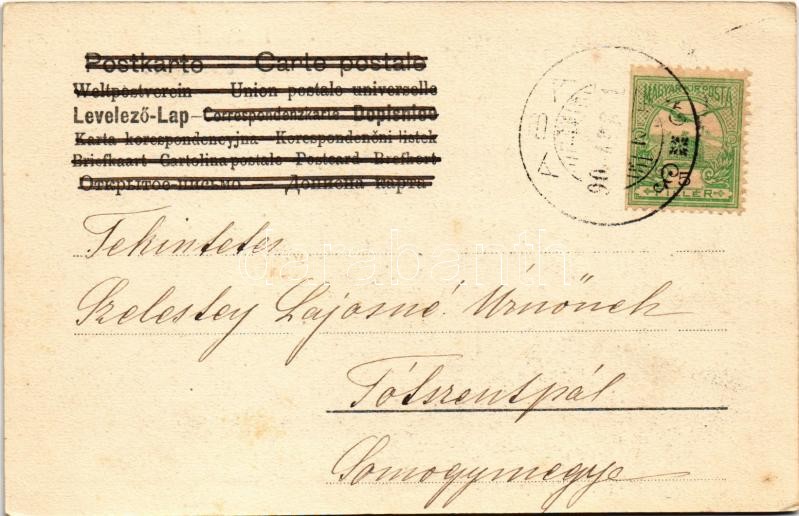 Postkarte Carte postale
Weltpostverein Union postale universelle
Levelező-Lap – Correspondenzkarte Dopisnice
Karta korespondencyjna Korespondenční listek
Briefkaart Cartolina postale Postcard Brefkort
Открытое письмо Дописна карта
MAGYAR KIR. POSTA
5
Tekintetes
Szelestey Lajosné Úrnőnek
Tótszentpál
Somogymegye
darabanth